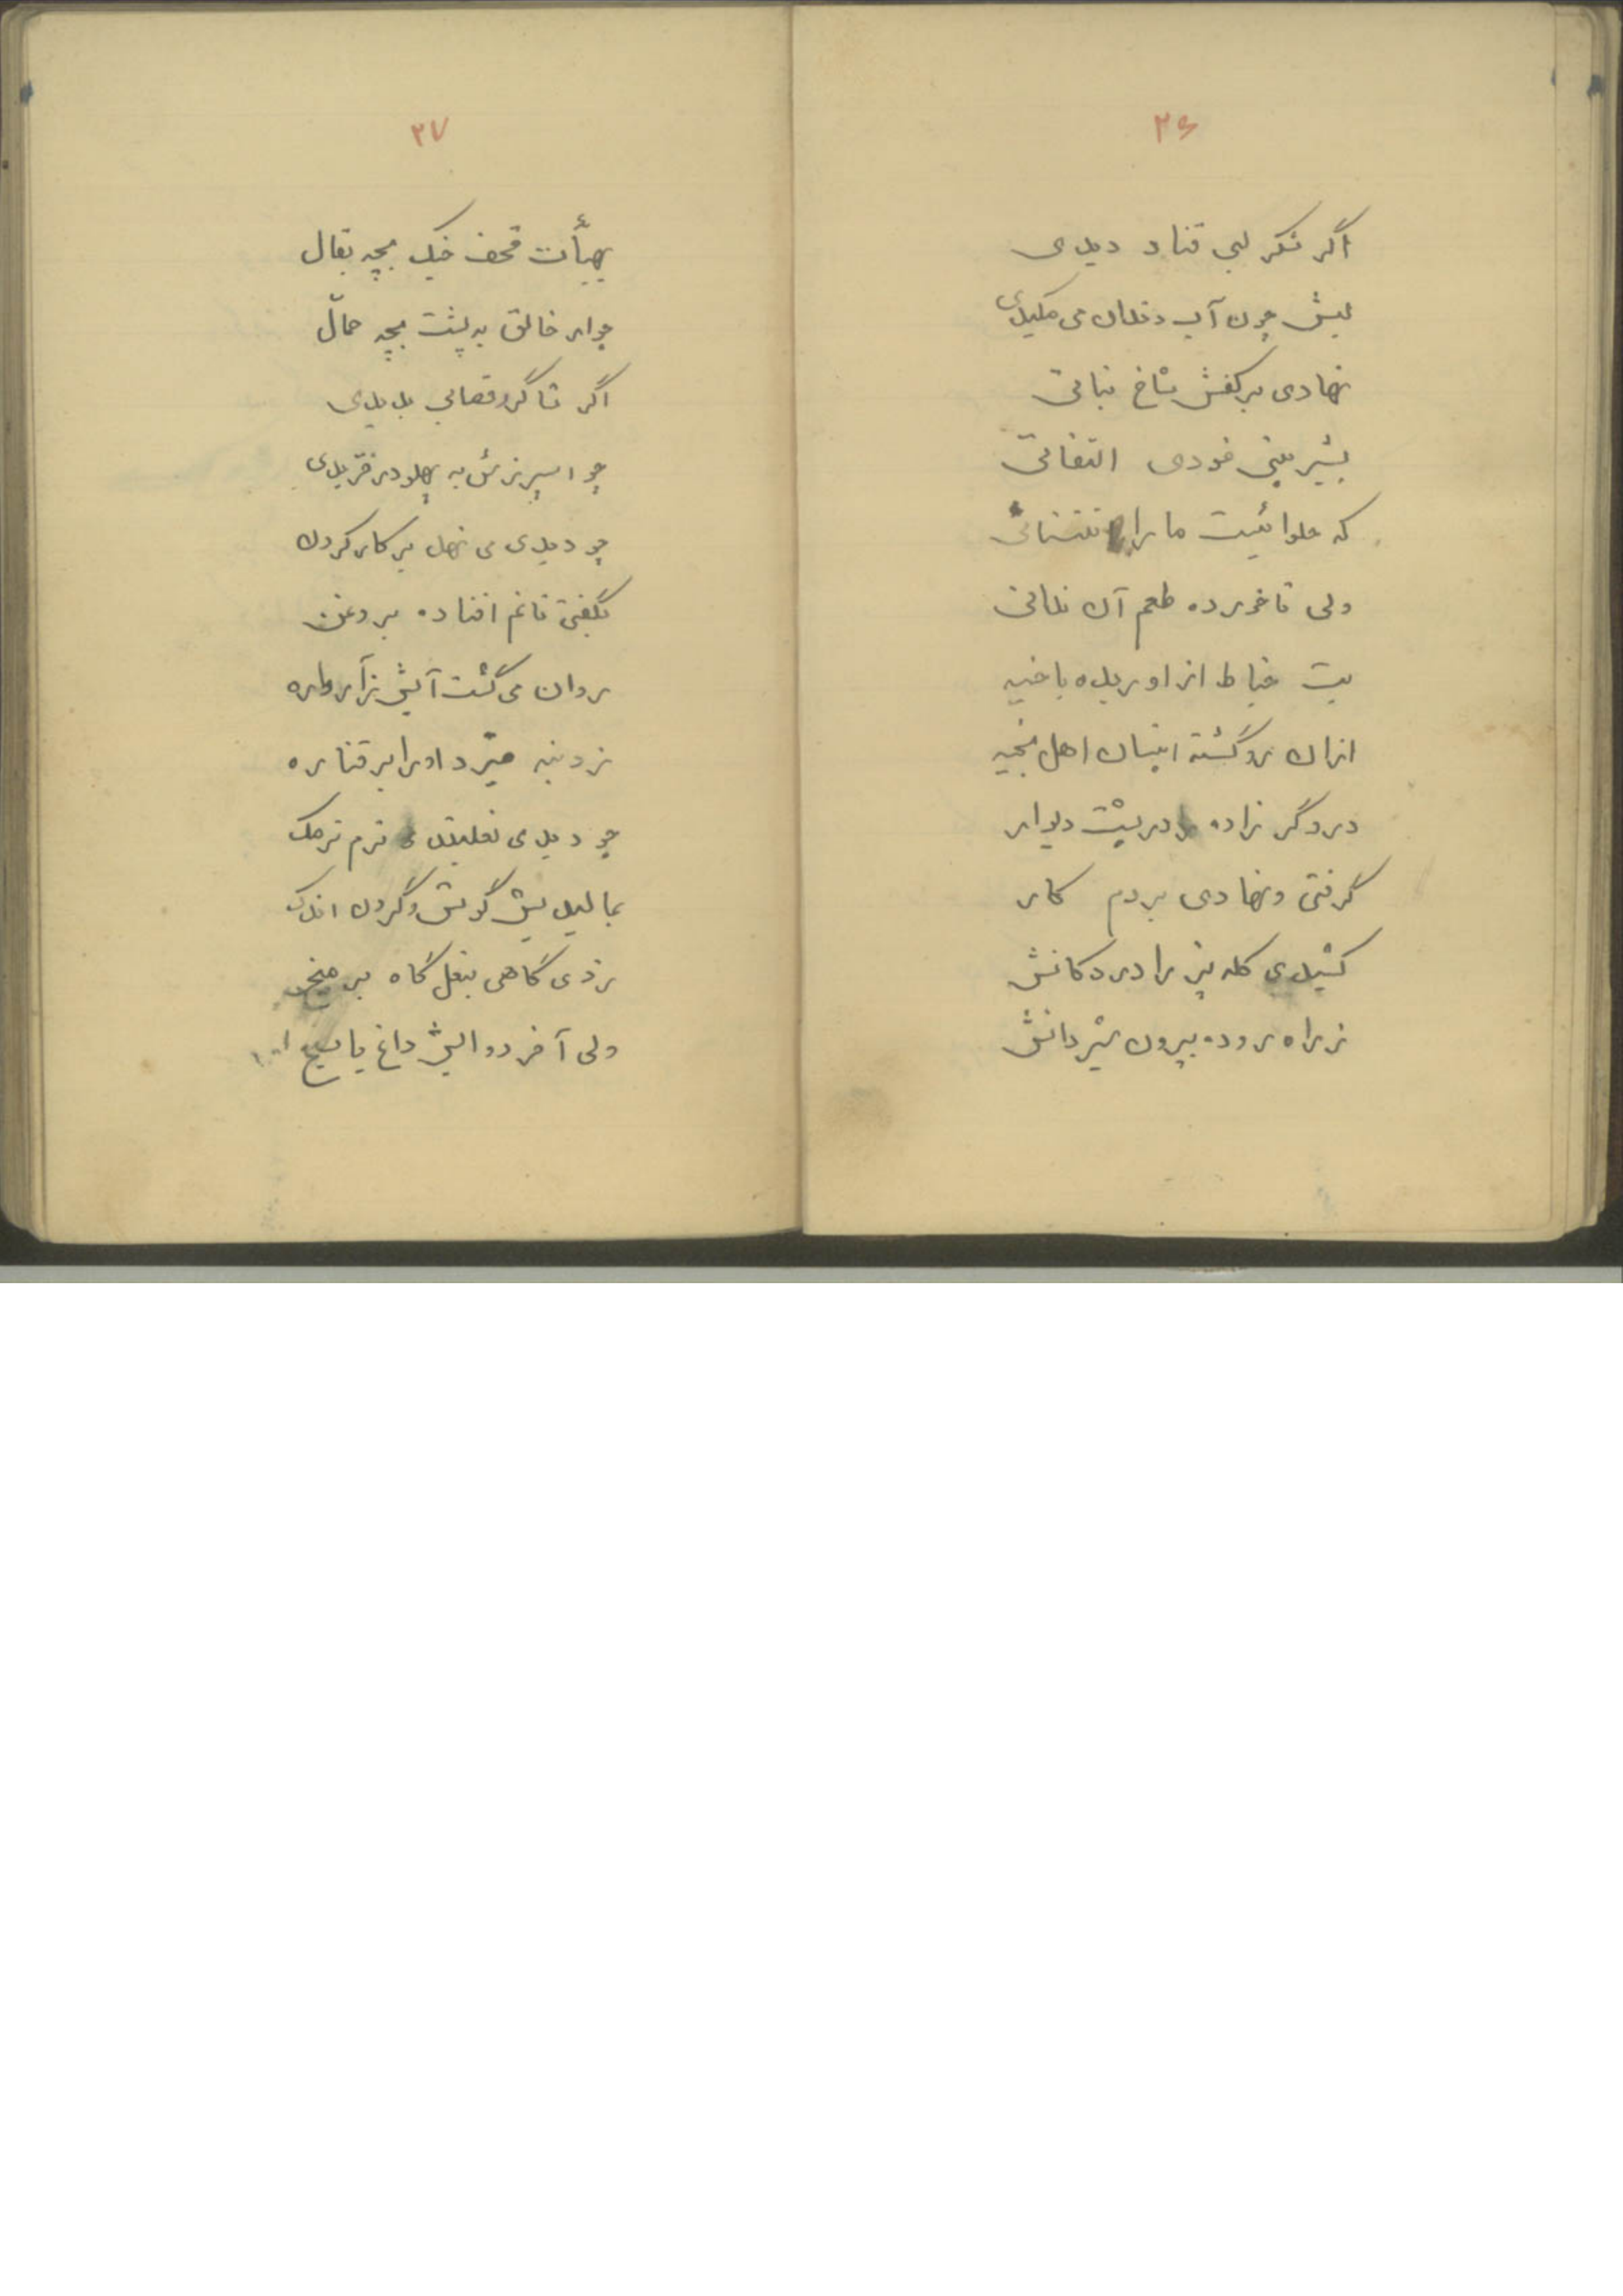 ۲۶
اگر شکر لبی قناد دیدی
لبش چون آب دندان می مکیدی
نهادی بر کفش شاخ نباتی
بشیرینی نمودی التفاتی
که حلوائیست ما را تنتنانی
ولی تا خورده طعم آن ندانی
بت خیاط از او ریده باخیه
ازان رو گشته اینسان اهل بخیه
دروگر زاده در پشت دیوار
گرفتی و نهادی بر دم کار
کشیدی کله پز را در دکانش
ز راه روده بیرون شیردانش
۲۷
بهیأت قحف خیک بچه بقال
چو ار خالق به پشت بچه حمّال
اگر شاگرد قصابی بدیدی
چو اسپرزش به پهلو در خزیدی
چو دیدی می نهد بر کار گردن
بگفتی نانم افتاده بروغن
روان می گشت آبش ز آرواره
ز دنبه میزد او را بر قناره
چو دیدی نعلبند نرم نرمک
بمالیدیش گوش و گردن اندک
زدی گاهی بنعل گاه بر میخ
ولی آخر دوالیش داغ با سیخ